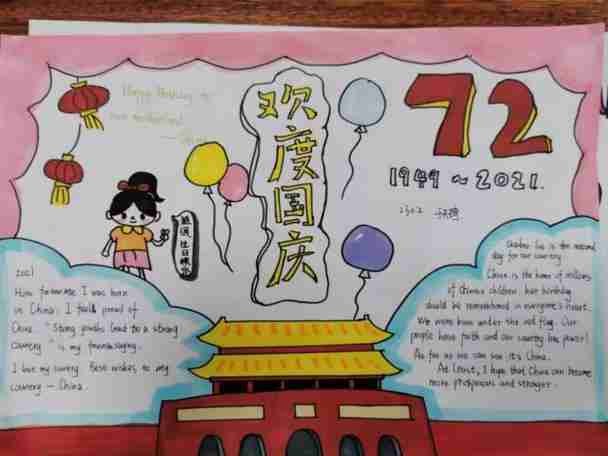 Happy Birthday to
our motherland
—— China
欢度国庆
72
1949 ~ 2021.
2302
祖国生日快乐
How fortunate I was born
in China. I feel proud of
China. "Strong youths lead to a strong
country" is my favourite saying.
I love my country. Best wishes to my
country — China.
October 1st is the national
day for our country.
China is the home of millions
of Chinese children. Her birthday
should be remembered in everyone's heart.
We were born under the red flag. Our
people have faith and our country has power!
As far as we can see it's China.
At least, I hope that China can become
more prosperous and stronger.